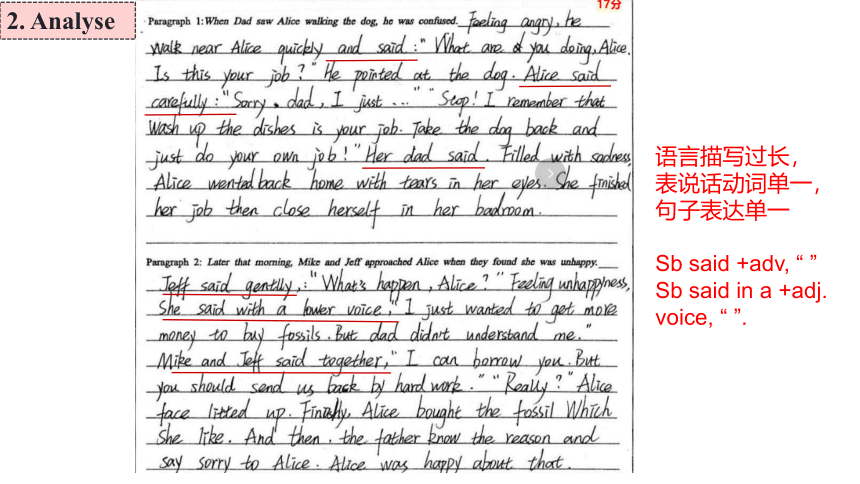 2. Analyse
17分
Paragraph 1: When Dad saw Alice walking the dog, he was confused. Feeling angry, he
walk near Alice quickly and said :" What are of you doing, Alice.
Is this your job ? " He pointed at the dog. Alice said
carefully : " Sorry, dad, I just ... " " Stop! I remember that
wash up the dishes is your job. Take the dog back and
just do your own job ! " Her dad said. Filled with sadness,
Alice wented back home with tears in her eyes. She finished
her job then close herself in her badroom.
Paragraph 2: Later that morning, Mike and Jeff approached Alice when they found she was unhappy.
Jeff said gentlly, : " What's happen , Alice ? " Feeling unhappyness,
She said with a lower voice, " I just wanted to get more
money to buy fossils . But dad didn't understand me. "
Mike and Jeff said together, " I can borrow you. But
you should send us back by hard work . " " Really ? " Alice
face litted up. Finially, Alice bought the fossil Which
she like. And then , the father know the reason and
say sorry to Alice. Alice was happy about that.
语言描写过长，
表说话动词单一，
句子表达单一
Sb said +adv, “ ”
Sb said in a +adj.
voice, “ ”.